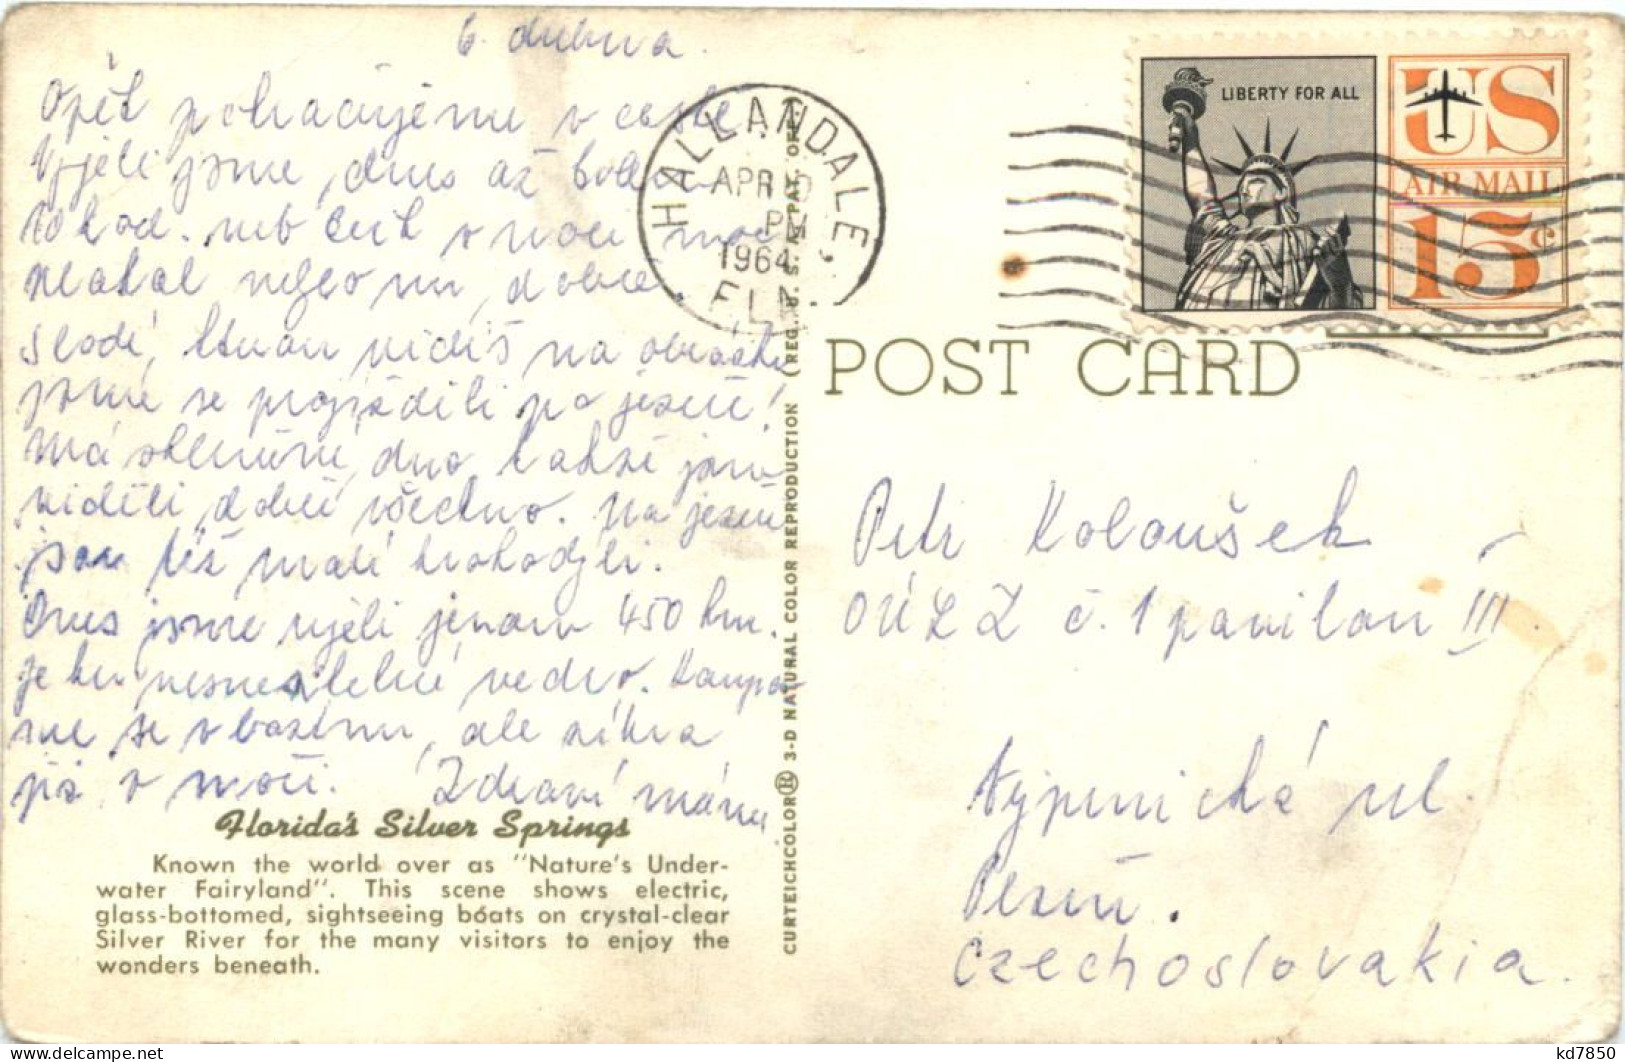 6. dubna.
Opět pokračujeme v cestě
Vyjeli jsme, dnes až
v noci
nejsou
slodí, kterou vidíš na obrázku
jsme se projížděli po jezeře!
Má skleněné dno, takže jsme
viděli dobře všechno. Na jezeře
jsou též malí krokodýli.
Dnes jsme ujeli jenom 450 km.
Je tu nesnesitelné vedro. Koupe-
me se v bazénu, ale zítra
již v moři. Zdraví máma
Florida's Silver Springs
Known the world over as "Nature's Under-
water Fairyland". This scene shows electric,
glass-bottomed, sightseeing boats on crystal-clear
Silver River for the many visitors to enjoy the
wonders beneath.
CURTEICHCOLOR® 3-D NATURAL COLOR REPRODUCTION (REG. U. S. A. PAT. OFF.)
HALLANDALE,
APR
PM
1964
FLA
LIBERTY FOR ALL
US
AIR MAIL
15c
POST CARD
Petr Koloušek
OÚLZ č. 1 pavilon III.
ul.
Plzeň.
Czechoslovakia.
kd7850